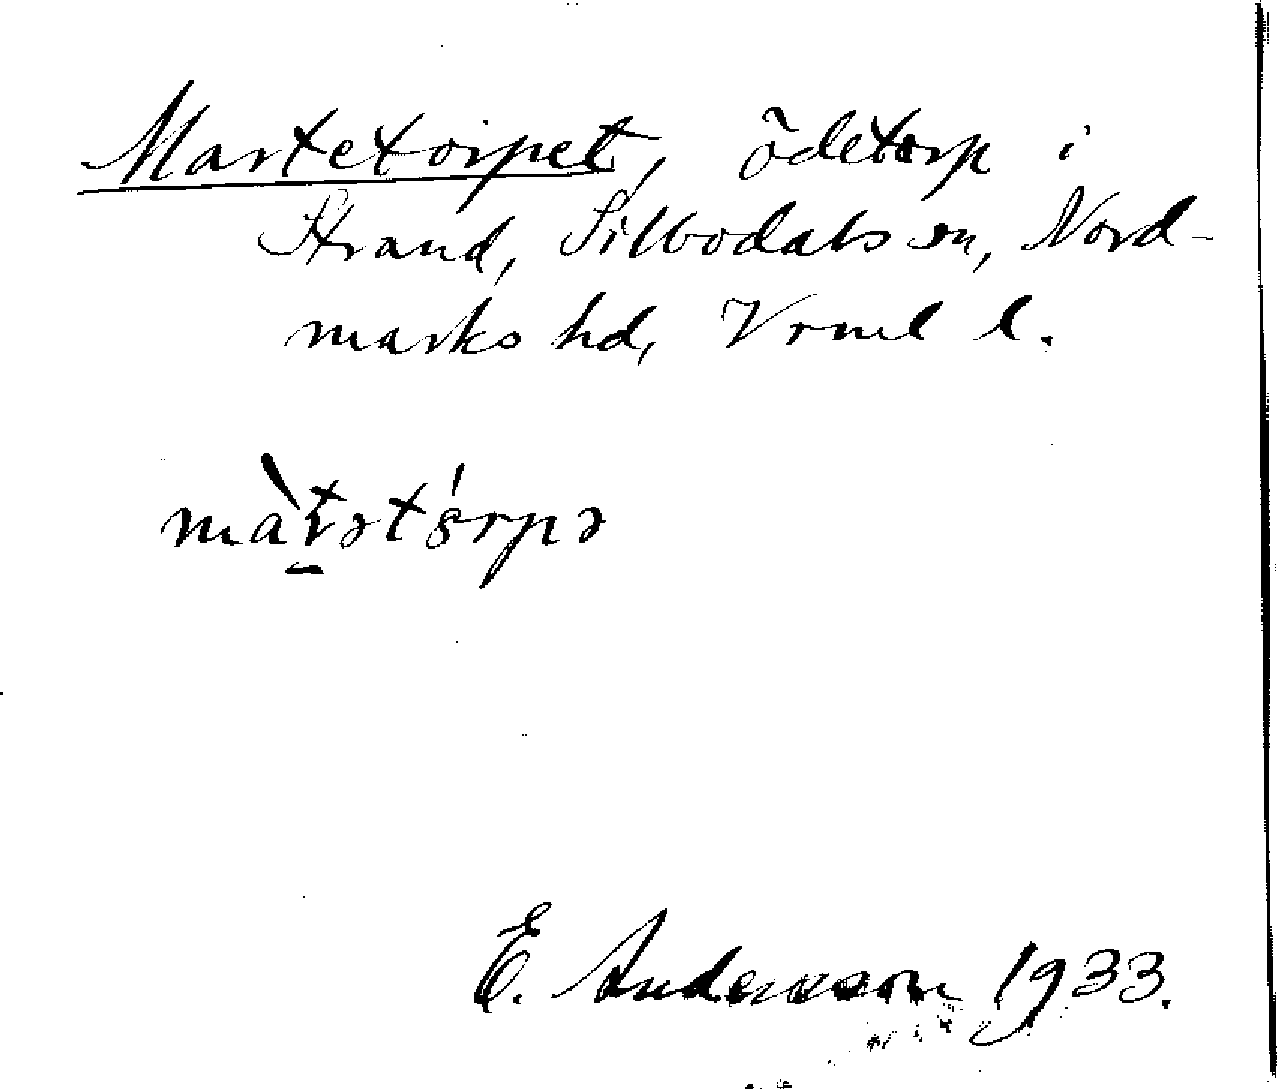 Martetorpet, ödetorp i
Strand, Silbodals sn, Nord-
marks hd, Vrml l.
E. Andersson 1933.